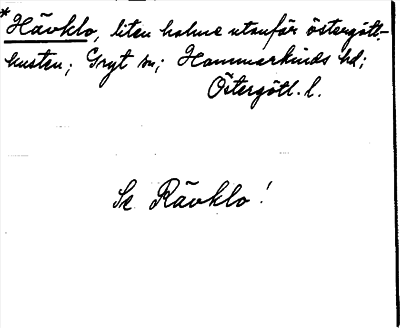 * Hävklo, liten holme utanför östergötl.-
kusten; Gryt sn; Hammarkinds hd;
Östergötl. l.
Se Rävklo!